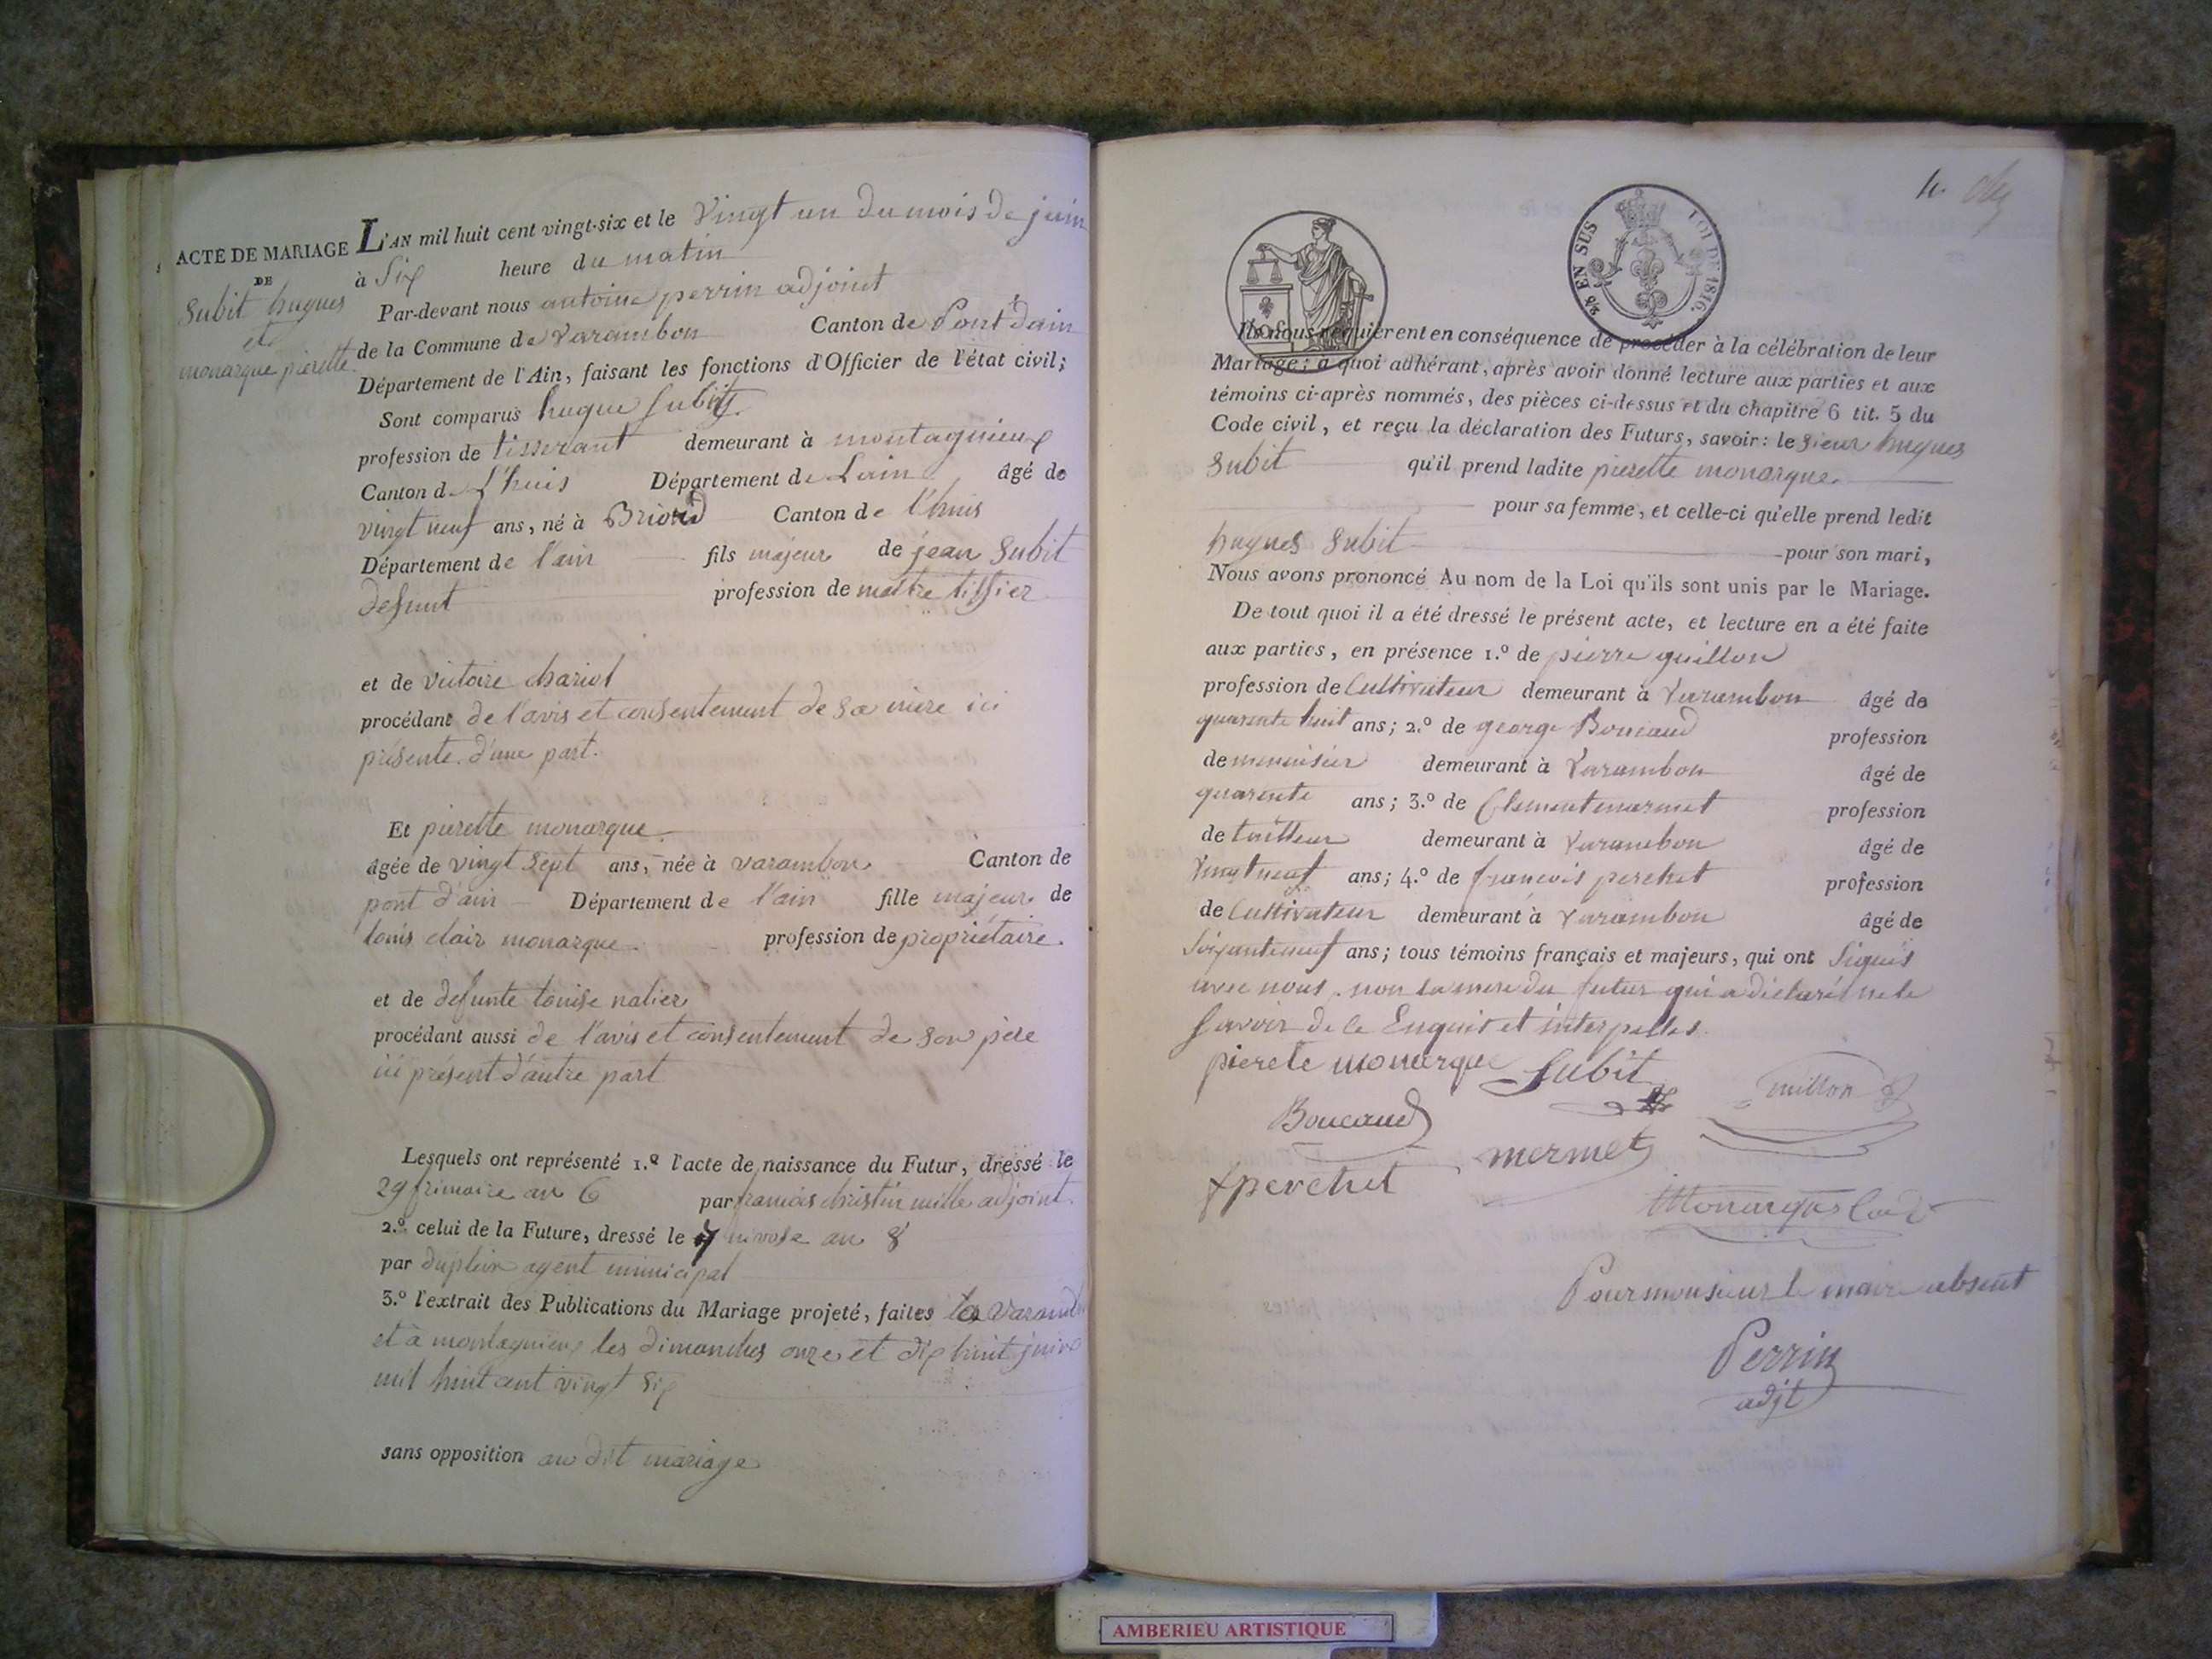 ACTE DE MARIAGE
DE
Subit hugues
et
monarque pierette.
L'AN mil huit cent vingt-six et le Vingt un du mois de juin
à Six heure du matin
Par-devant nous antoine perrin adjoint
de la Commune de Varambon Canton de Pont dain
Département de l'Ain, faisant les fonctions d'Officier de l'état civil;
Sont comparus hugue Subit
profession de tisserant demeurant à montagnieux
Canton de L'huis Département de Lain âgé de
vingt neuf ans, né à Briord Canton de l'huis
Département de l'ain fils majeur de jean Subit
defunt profession de maitre tissier
et de victoire chariot
procédant de l'avis et consentement de sa mère ici
présente. d'une part.
Et pierette monarque
âgée de vingt sept ans, née à varambon Canton de
pont d'ain Département de l'ain fille majeure de
louis clair monarque profession de propriétaire.
et de defunte louise nalier
procédant aussi de l'avis et consentement de son père
ici présent d'autre part
Lesquels ont représenté 1.º l'acte de naissance du Futur, dressé le
29 frimaire an 6 par francois christin mille adjoint.
2.º celui de la Future, dressé le 7 nivose an 8
par duplein agent municipal
3.º l'extrait des Publications du Mariage projeté, faites
et à montagnieux les dimanches onze et dix huit juin
mil huit cent vingt six
sans opposition au dit mariage
4.
2/10 EN SUS LOI DE 1816.
Ils nous requièrent en conséquence de procéder à la célébration de leur
Mariage; à quoi adhérant, après avoir donné lecture aux parties et aux
témoins ci-après nommés, des pièces ci-dessus et du chapitre 6 tit. 5 du
Code civil, et reçu la déclaration des Futurs, savoir: le sieur hugues
Subit qu'il prend ladite pierette monarque
pour sa femme, et celle-ci qu'elle prend ledit
hugues Subit pour son mari,
Nous avons prononcé Au nom de la Loi qu'ils sont unis par le Mariage.
De tout quoi il a été dressé le présent acte, et lecture en a été faite
aux parties, en présence 1.º de pierre guillon
profession de Cultivateur demeurant à Varambon âgé de
quarente huit ans; 2.º de george Boucaud profession
de menuisier demeurant à Varambon âgé de
quarente ans; 3.º de Clement mermet profession
de tailleur demeurant à Varambon âgé de
Vingt neuf ans; 4.º de francois perchet profession
de Cultivateur demeurant à Varambon âgé de
Soixante neuf ans; tous témoins français et majeurs, qui ont Signés
avec nous, non la mere du futur qui a diclaré ne le
Savoir de ce Enquis et interpelles.
pierete monarque Subit
Boucaud mermet
fperchet
Monarque
Pour monsieur le maire absent
Perrin
adjt
AMBERIEU ARTISTIQUE